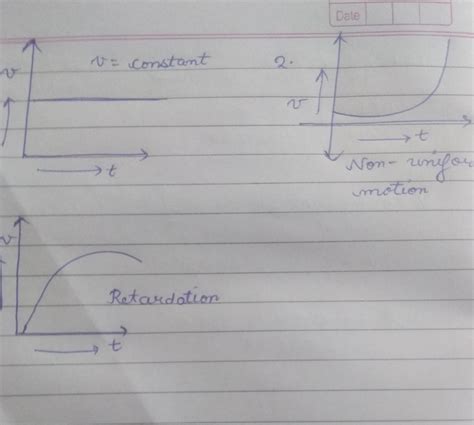 Date
v = constant
2.
v
v
t
t
Non-unifor
motion
v
Retardation
t